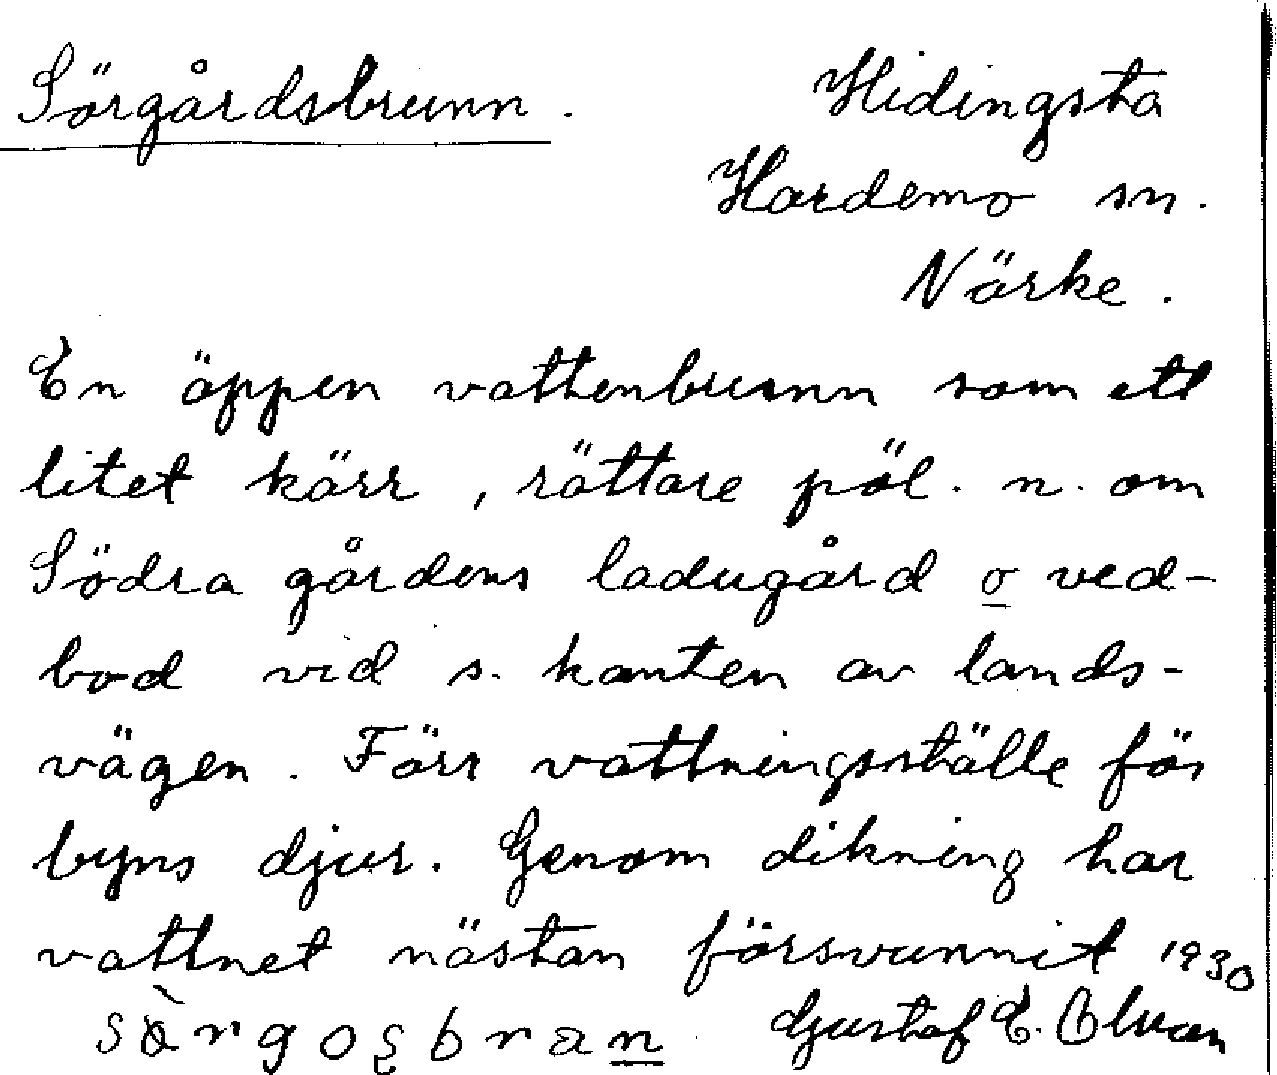 Sörgårdsbrunn. Hidingsta
Hardemo sn.
Närke.
En öppen vattenbrunn som ett
litet kärr, rättare pöl. n. om
Södra gårdens ladugård o ved-
bod vid s. kanten av lands-
vägen. Förr vattningsställe för
byns djur. Genom dikning har
vattnet nästan försvunnit 1930
Gustaf E.